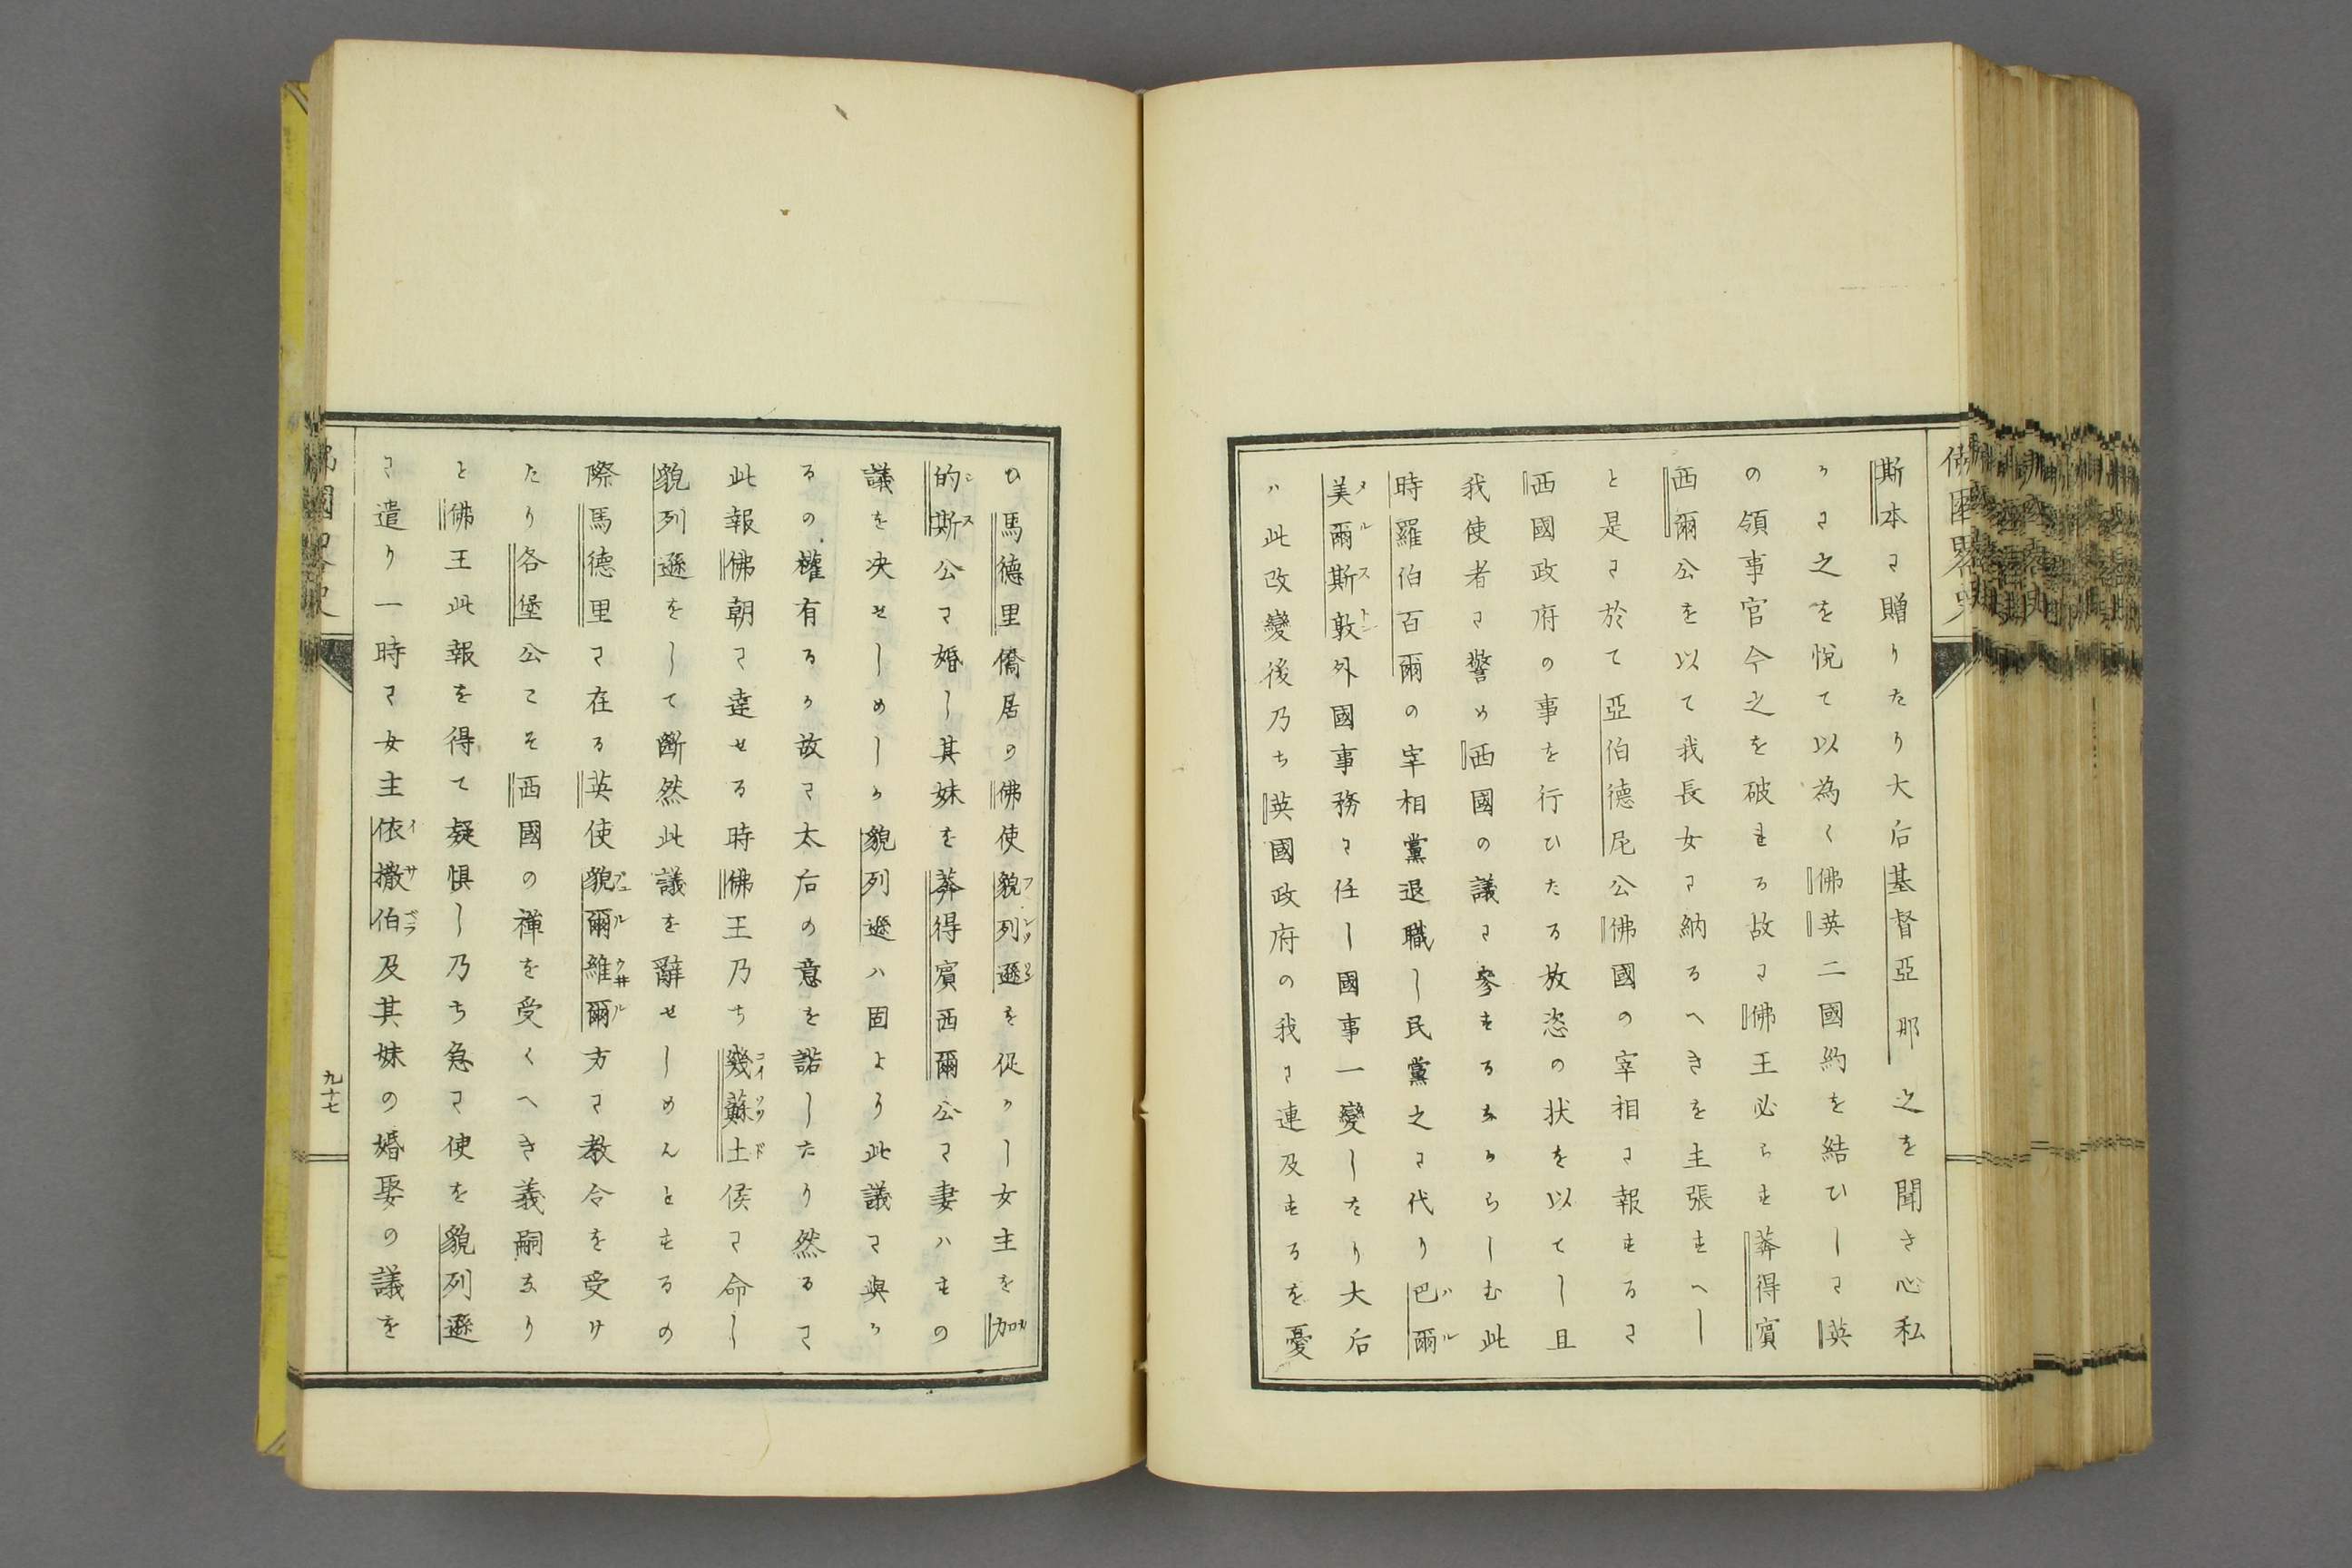 佛國畧史
斯本に贈りたり大后基督亞那之を聞き心私
かに之を悅て以為く佛英二國約を結ひしに英
の領事官今之を破れる故に佛王必らす莾得賓
西爾公を以て我長女に納るへきを主張すへし
と是に於て亞伯德尼公佛國の宰相に報するに
西國政府の事を行ひたる放恣の状を以てし且
我使者に警め西國の議に參するなからしむ此
時羅伯百爾の宰相黨退職し民黨之に代り巴爾
ハル
美爾斯敦外國事務に任し國事一變したり大后
メルストン
ハ此改變後乃ち英國政府の我に連及するを憂
ひ馬德里僑居の佛使貌列遜を従かし女主を加
フレツソン
カ
的斯公に婚し其妹を莾得賓西爾公に妻ハすの
シス
議を决せしめしか貌列遜ハ固より此議に與か
るの權有るか故に太后の意を諾したり然るに
此報佛朝に達せる時佛王乃ち幾蘇土侯に命し
コイソウド
貌列遜をして斷然此議を辭せしめんとするの
際馬德里に在る英使貌爾維爾方に教令を受け
ブュルウ井ル
たり各堡公こそ西國の禅を受くへき義嗣なり
と佛王此報を得て疑惧し乃ち急に使を貌列遜
に遣り一時に女主依撒伯及其妹の婚娶の議を
イサベラ
佛國畧史
九十七